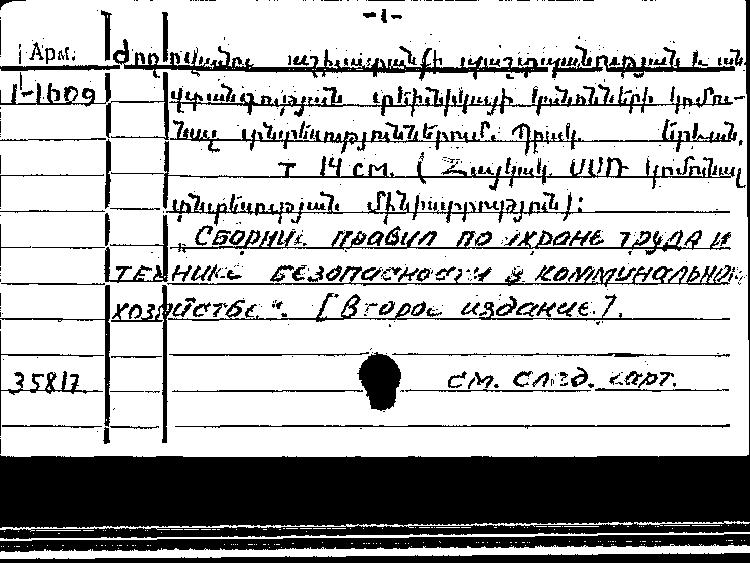 -1-
Арм. Ժողովածու աշխատանքի պաշտպանության և ան
1-1609 վտանգության տեխնիկայի կանոնների կոմու-
նալ տնտեսություններում. Պրակ. Երևան,
т 14 см. (Հայկակ. ՍՍՌ կոմունալ
տնտեսության մինիստրություն):
„Сборник правил по охране труда и
технике безопасности в коммунальном
хозяйстве“. [Второе издание].
35817. см. след. карт.